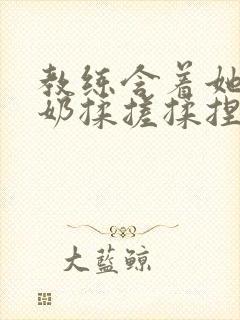 教练含着她
奶揉搓揉捏
大蓝鲸